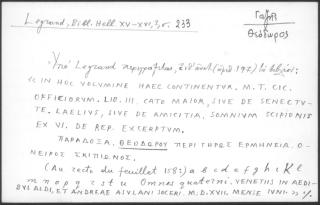 Legrand, Bibl. Hell. XV-XVI, 3, σ. 233
Γαζῆς
Θεόδωρος
Ὑπὸ Legrand περιγράφεται, (ἀριθ. 197) τὸ βιβλίον:
« IN HOC VOLVMINE HAEC CONTINENTVR. M. T. CIC.
OFFICIORVM. LIB. III. CATO MAIOR, SIVE DE SENECTV-
TE. LAELIVS, SIVE DE AMICITIA, SOMNIVM SCIPIONIS
EX VI. DE REP. EXCERPTVM.
ΠΑΡΑΔΟΞΑ. ΘΕΟΔΩΡΟΥ ΠΕΡΙ ΓΗΡΩΣ ΕΡΜΗΝΕΙΑ. Ο-
ΝΕΙΡΟΣ ΣΚΙΠΙΩΝΟΣ.
(Au recto du feuillet 158:) a b c d e f g h i k l
m n o p q r s t u Omnes quaterni. VENETIIS IN AEDI-
BVS ALDI, ET ANDREAE ASVLANI SOCERI. M.D.XVII, MENSE IVNI. »